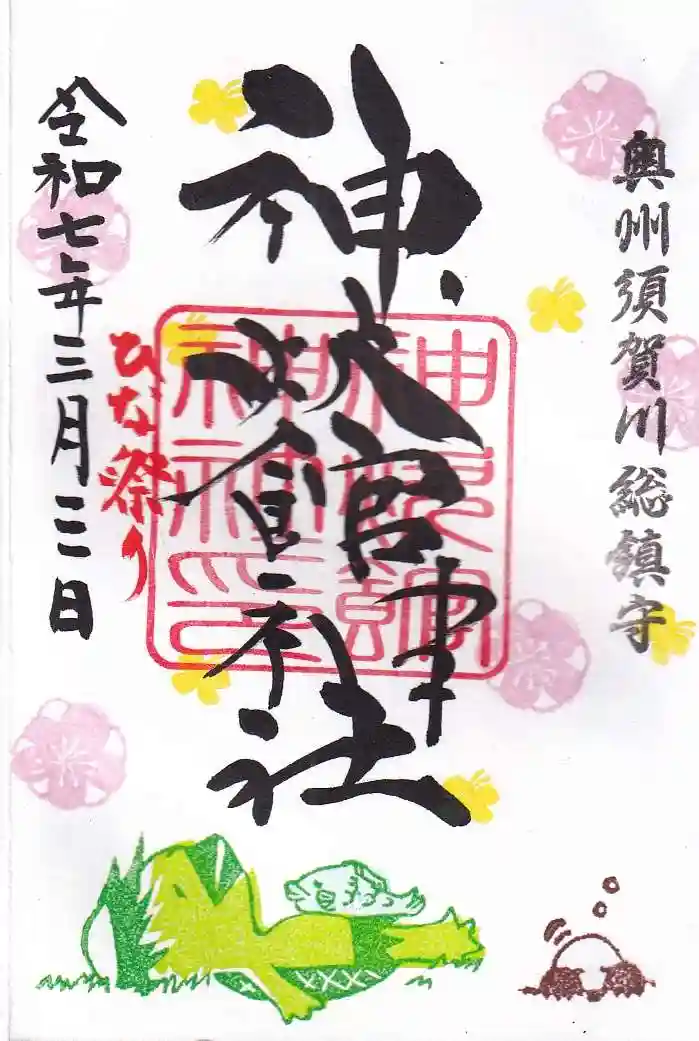 奥州須賀川総鎮守
神炊館神社
神炊館神社印
ひな祭り
令和七年三月三日